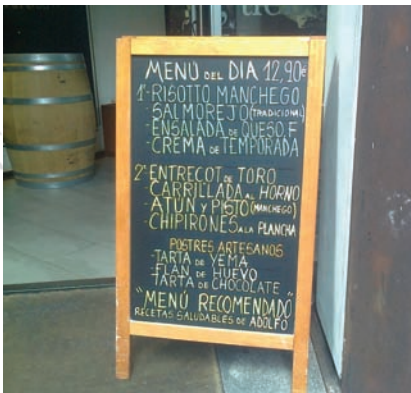 MENÚ DEL DIA 12,90€
1º-RISOTTO MANCHEGO
-SALMOREJO (TRADICIONAL)
-ENSALADA DE QUESO.F
-CREMA DE TEMPORADA
2º-ENTRECOT DE TORO
-CARRILLADA AL HORNO
-ATUN Y PISTO (MANCHEGO)
-CHIPIRONES A LA PLANCHA
POSTRES ARTESANOS
-TARTA DE YEMA
-FLAN DE HUEVO
-TARTA DE CHOCOLATE
"MENÚ RECOMENDADO"
RECETAS SALUDABLES DE ADOLFO